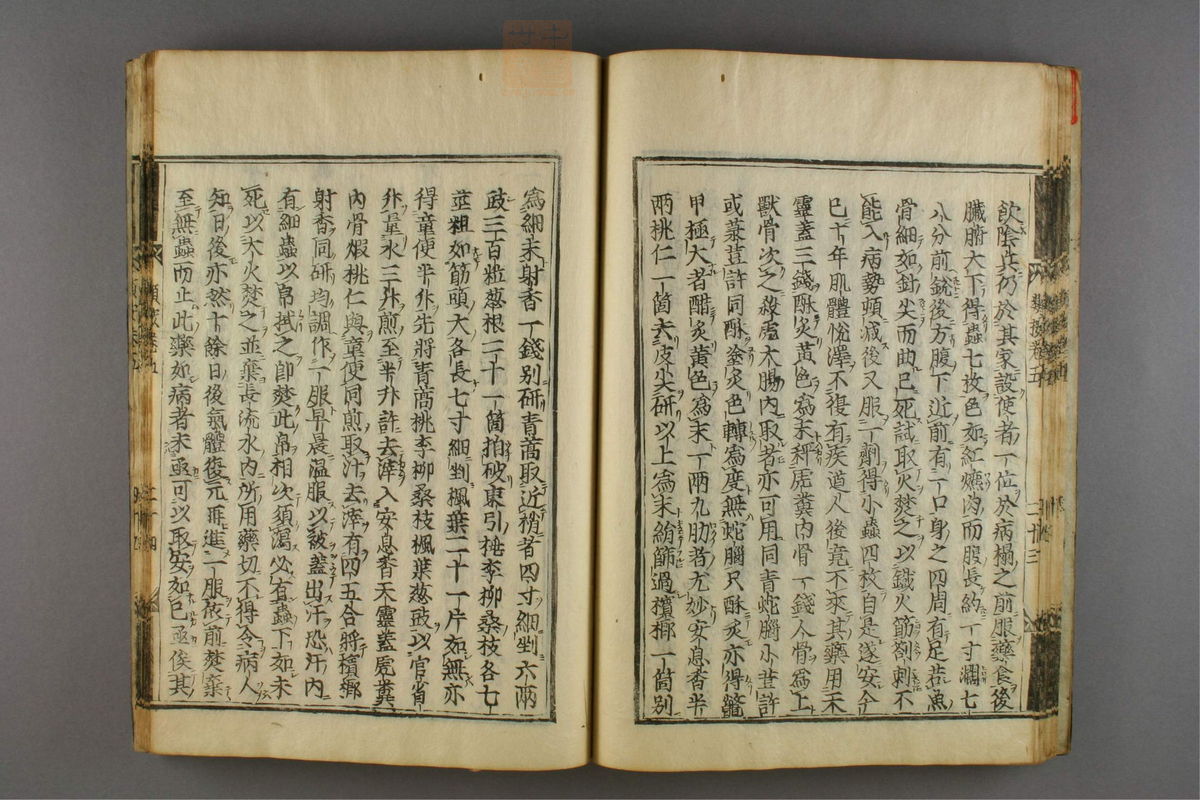 飲陰兵仍於其家設使者一位於病榻之前服藥食後
臟腑大下得蟲七枚色如紅爊肉而腹長約一寸濶七
八分前銳後方腹下近前有一口身之四周有足若魚
骨細如針尖而曲已死試取火焚之以鐵火筯剳刺不
能入病勢頓减後又服一劑得小蟲四枚自是遂安今
已十年肌體悅澤不復有疾道人後竟不來其藥用天
靈蓋三錢酥炙黃色爲末秤虎糞內骨一錢人骨爲上
獸骨次之殺虎大腸內取者亦可用同青蛇腦小豆許
或菉豆許同酥塗炙色轉爲度無蛇腦只酥炙亦得鱉
甲極大者醋炙黃色爲末一兩九肋者尤妙安息香半
兩桃仁一箇去皮尖研以上爲末絹篩過檳榔一箇別
爲細末射香一錢別研青蒿取近梢者四寸細剉六兩
豉三百粒葱根二十一箇拍破東引桃李柳桑枝各七
莖粗如筯頭大各長七寸細剉楓葉二十一片如無亦
得童便半升先將青蒿桃李柳桑枝楓葉葱豉以官省
升量水三升煎至半升許去滓入安息香天靈蓋虎糞
內骨鱉桃仁與童便同煎取汁去滓有四五合將檳榔
射香同研均調作一服早晨温服以被蓋出汗恐汗內
有細蟲以帛拭之卽焚此帛相次須瀉必有蟲下如未
死以大火焚之並葉長流水內所用藥切不得令病人
知日後亦然十餘日後氣體復元再進一服依前焚棄
至無蟲而止此藥如病者未亟可以取安如已亟俟其